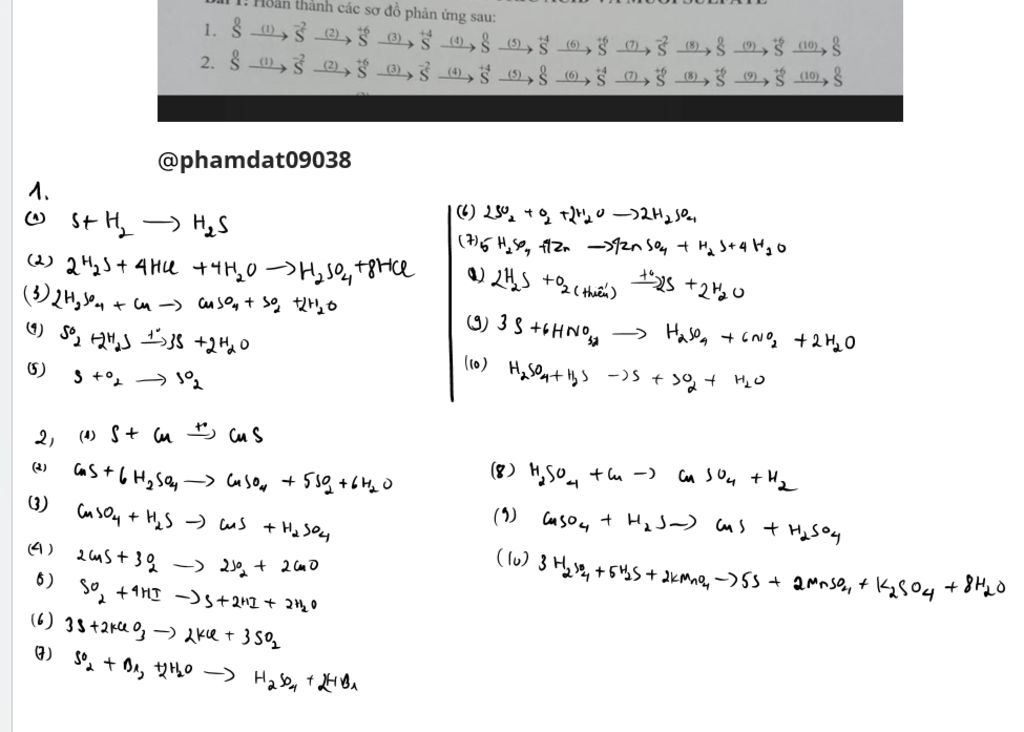 Bài 1: Hoàn thành các sơ đồ phản ứng sau:
1. S⁰ —(1)→ S⁻² —(2)→ S⁺⁶ —(3)→ S⁺⁴ —(4)→ S⁰ —(5)→ S⁺⁴ —(6)→ S⁺⁶ —(7)→ S⁻² —(8)→ S⁰ —(9)→ S⁺⁶ —(10)→ S⁰
2. S⁰ —(1)→ S⁻² —(2)→ S⁺⁶ —(3)→ S⁻² —(4)→ S⁺⁴ —(5)→ S⁰ —(6)→ S⁺⁴ —(7)→ S⁺⁶ —(8)→ S⁺⁶ —(9)→ S⁺⁶ —(10)→ S⁰
@phamdat09038
1.
(1) S + H₂ → H₂S
(2) 2H₂S + 4HCl + 4H₂O → H₂SO₄ + 8HCl
(3) 2H₂SO₄ + Cu → CuSO₄ + SO₂ + 2H₂O
(4) SO₂ + 2H₂S —t°→ 3S + 2H₂O
(5) S + O₂ → SO₂
(6) 2SO₂ + O₂ + 2H₂O → 2H₂SO₄
(7) 5H₂SO₄ + 4Zn → 4ZnSO₄ + H₂S + 4H₂O
2H₂S + O₂ (thiếu) —t°→ 2S + 2H₂O
(9) 3S + 6HNO₃ → H₂SO₄ + 6NO₂ + 2H₂O
(10) H₂SO₄ + H₂S → S + SO₂ + H₂O
2, (1) S + Cu —t°→ CuS
(2) CuS + 6H₂SO₄ → CuSO₄ + 5SO₂ + 6H₂O
(3) CuSO₄ + H₂S → CuS + H₂SO₄
(4) 2CuS + 3O₂ → 2SO₂ + 2CuO
5) SO₂ + 4HI → S + 2HI + 2H₂O
(6) 3S + 2KClO₃ → 2KCl + 3SO₂
(7) SO₂ + Br₂ + 2H₂O → H₂SO₄ + 2HBr
(8) H₂SO₄ + Cu → CuSO₄ + H₂
(9) CuSO₄ + H₂S → CuS + H₂SO₄
(10) 3H₂SO₄ + 5H₂S + 2KMnO₄ → 5S + 2MnSO₄ + K₂SO₄ + 8H₂O